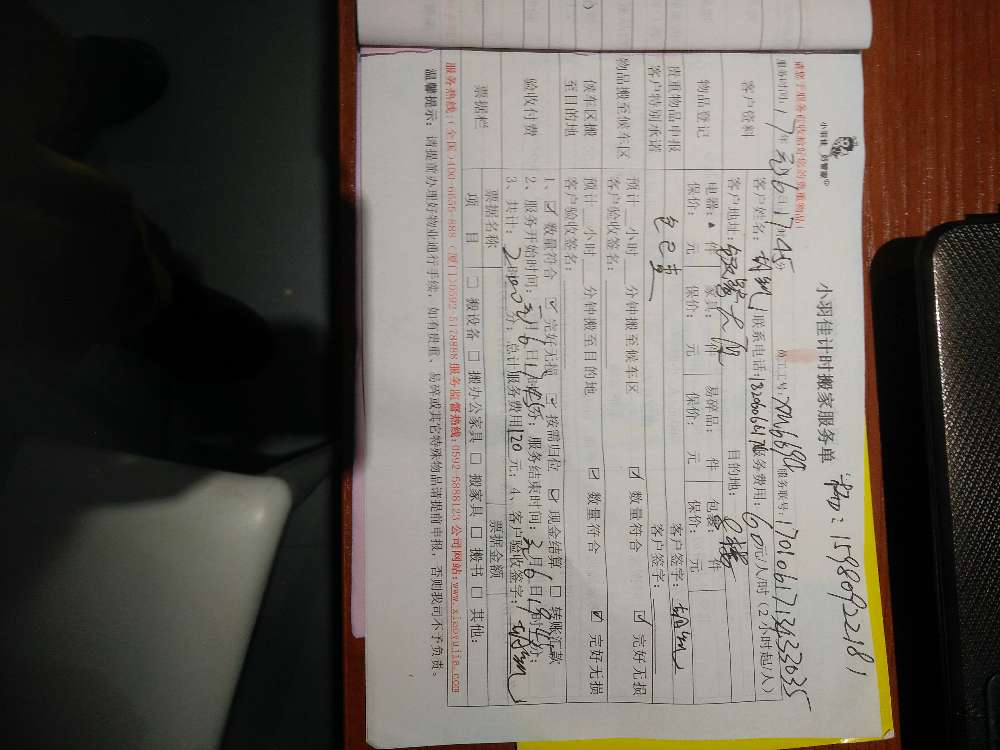 小羽佳计时搬家服务单
15980932181
请您于服务前收拾好您的贵重物品!
服务时间: 17年 3月6日 17时45分 员工工号: XMY6690 服务联号:
客户资料 客户姓名: 联系电话: 服务费用: 60元/人/时(2小时起/人)
客户地址: 目的地:
物品登记 电器: 件 家具: 件 易碎品: 件 包裹: 件
保价: 元 保价: 元 保价: 元 保价: 元
贵重物品申报
客户特别承诺
客户签字:
物品搬至候车区 预计 小时 分钟搬至候车区 ☑ 数量符合 ☑ 完好无损
客户验收签名: 客户签字:
候车区搬至目的地 预计 小时 分钟搬至目的地 ☑ 数量符合 ☑ 完好无损
客户验收签名:
验收付费 1、☑ 数量符合 ☑ 完好无损 ☑ 按需归位 ☑ 现金结算 □ 转账汇款
2、服务开始时间: 3月6日17时45分; 服务结束时间: 3月6日19时45分;
3、共计: 2时00分; 总计服务费用120元; 4、客户验收签字:
票据栏 票据名称 票据金额
项目 □ 搬设备 □ 搬办公家具 □ 搬家具 □ 搬书 □ 其他:
服务热线:(全国)400-6655-888 (厦门)0592-5178888 服务监督热线:0592-5888123 公司网站:www.xiaoyujia.com
温馨提示: 请提前办理好物业通行手续, 如有贵重、易碎或其它特殊物品请提前申报, 否则我司不予负责。